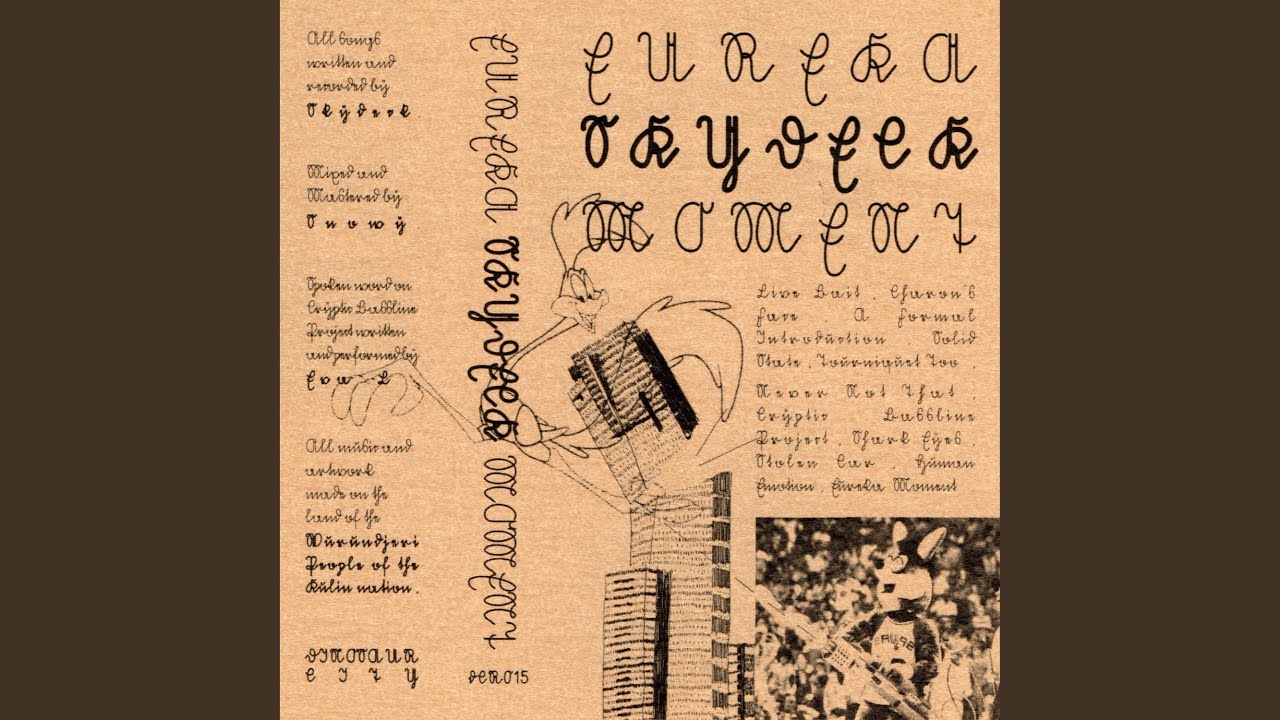 All songs
written and
recorded by
Skydeck.
Mixed and
Mastered by
Snowy.
Spoken word on
Cryptic Bassline
Project written
and performed by
Eva L
All music and
artwork
made on the
land of the
Wurundjeri
People of the
Kulin nation.
DINOSAUR
CITY
EUREKA SKYDECK MOMENT
DCR015
EUREKA
SKYDECK
MOMENT
Live Bait, Charon's
Face, A Formal
Introduction, Solid
State, Tourniquet Too,
Never Not That,
Cryptic Bassline
Project, Shark Eyes,
Stolen Car, Human
Emotion, Eureka Moment